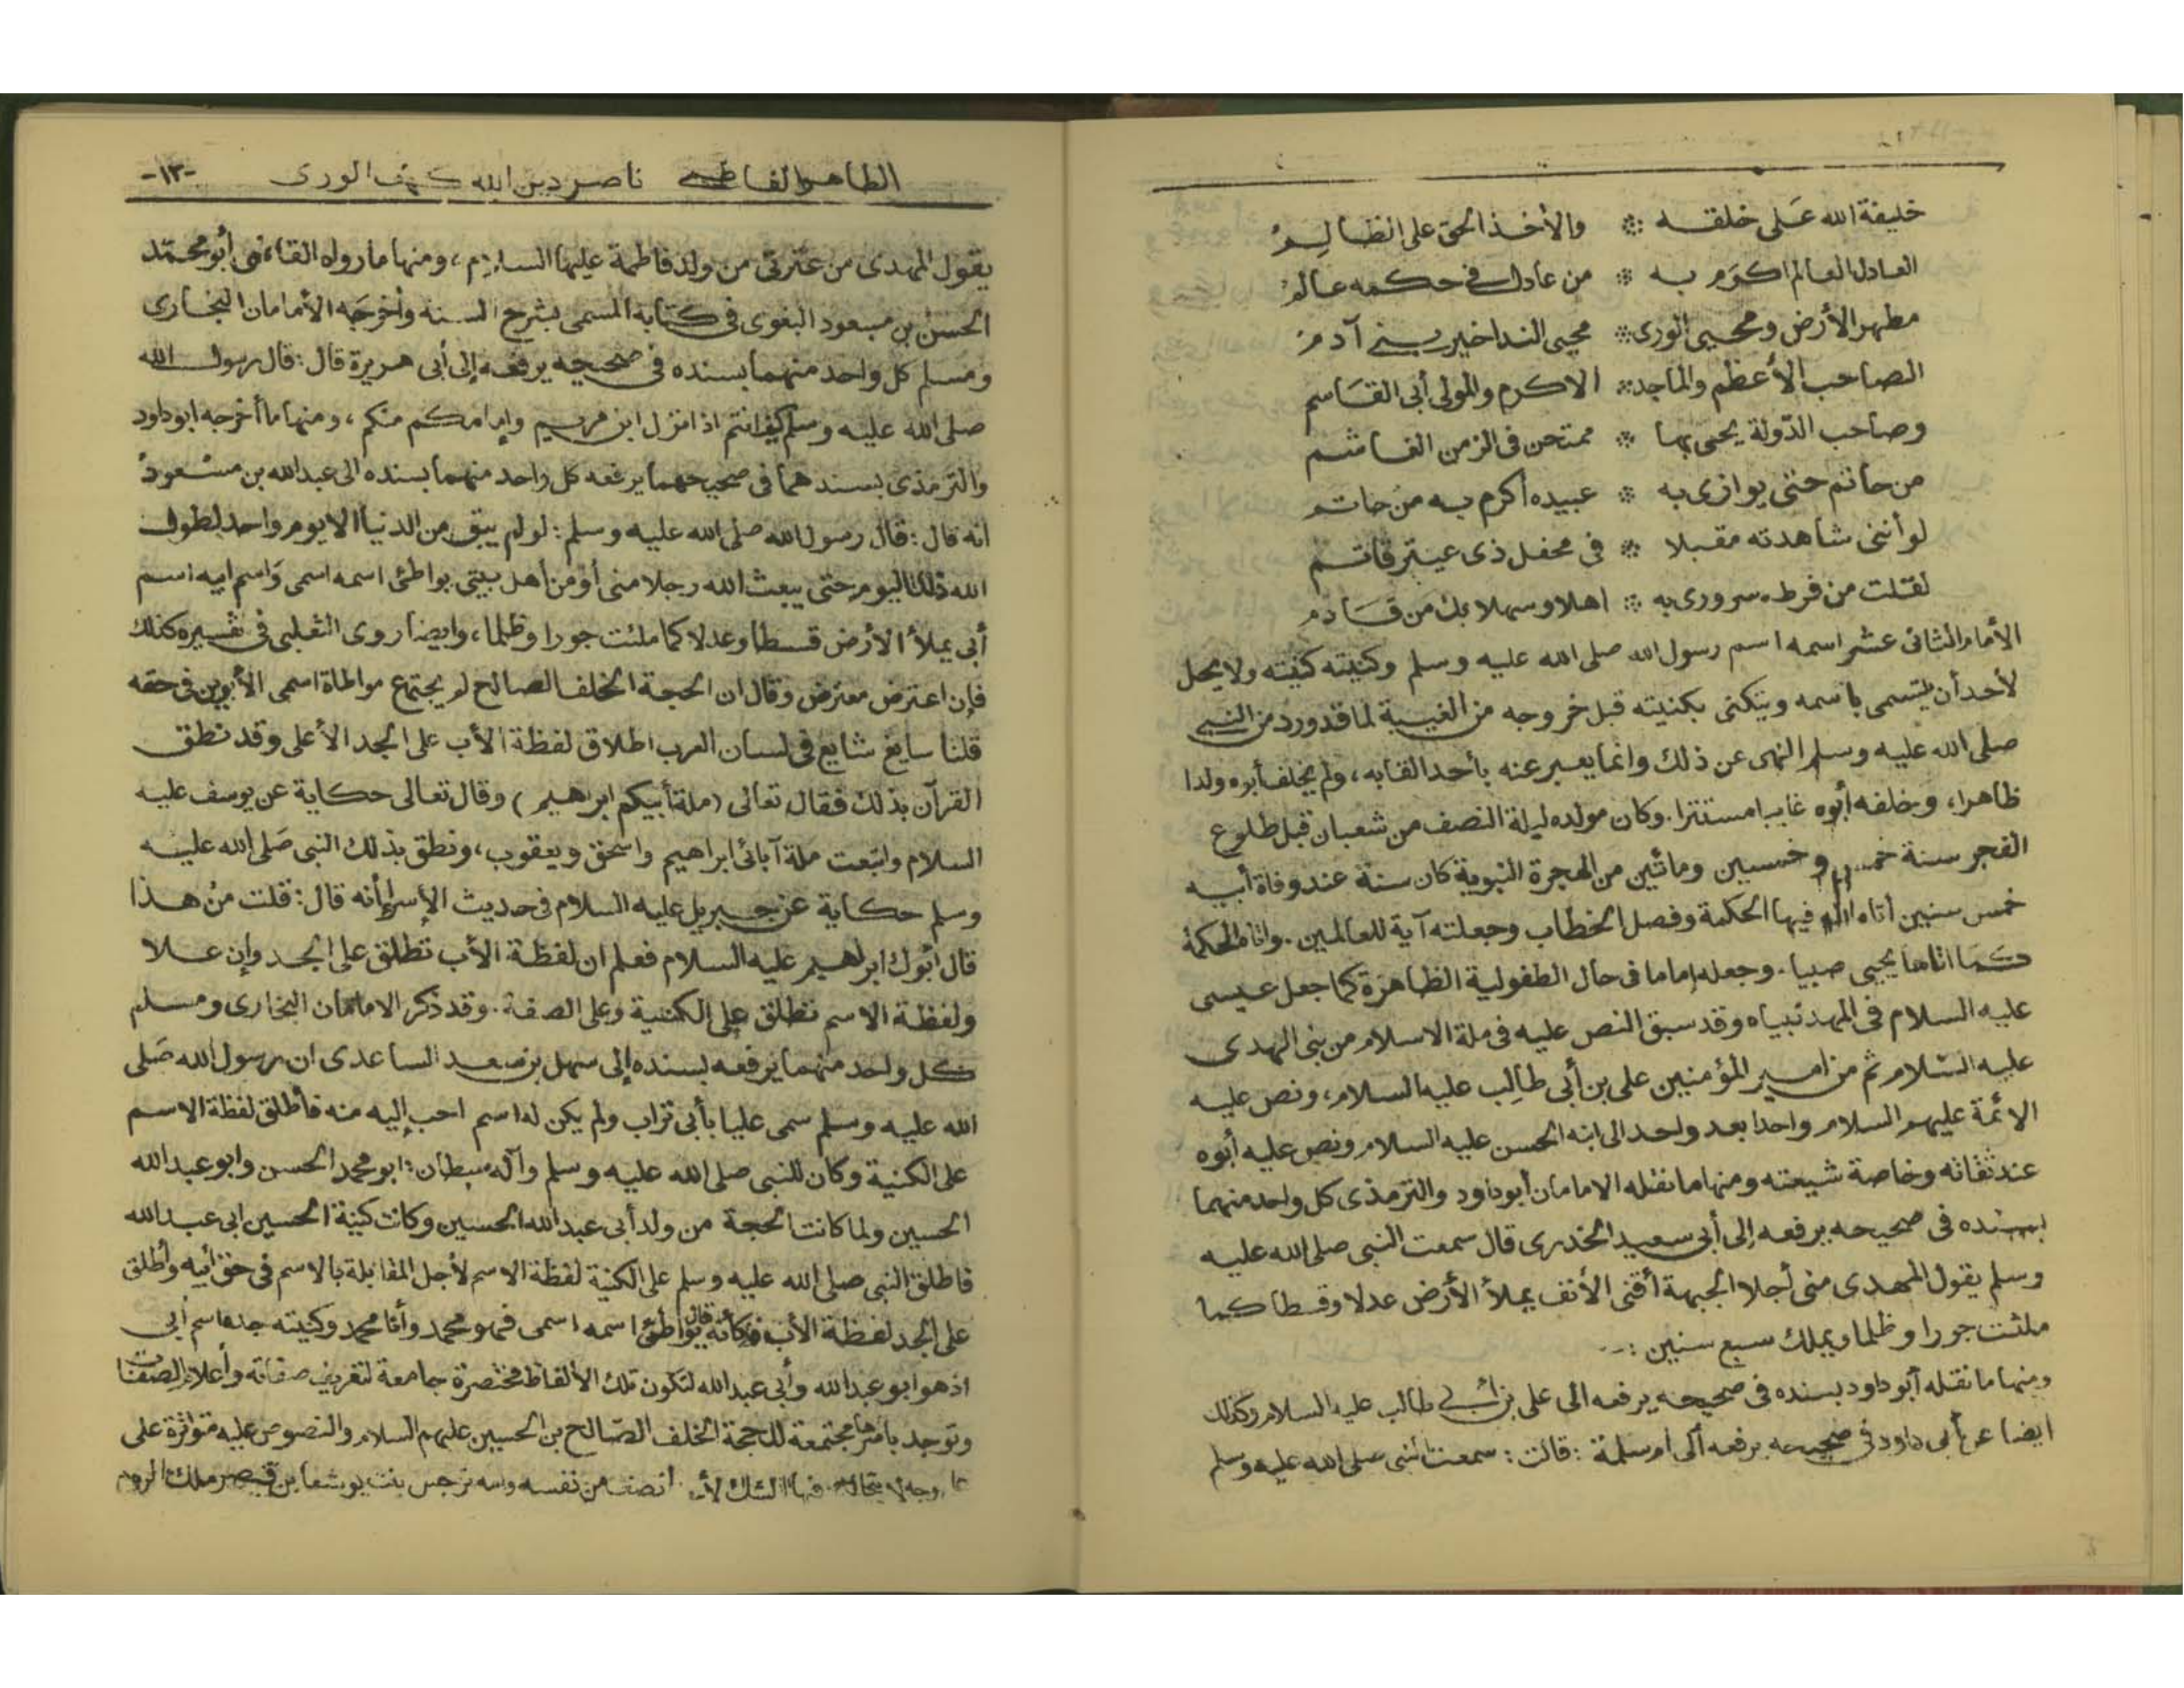 خليفة الله عَلى خلقه ※ والأخذ الحق على الظالِمُ
العادل العالم اكرَم به ※ من عادل في حكمه عالمُ
مطهر الأرض ومحيي الورى ※ محيى الندا خير بني آدمُ
الصاحب الأعظم والماجد ※ الاكرم والمولى أبى القاسم
وصاحب الدّولة يحى بها ※ ممتحن فى الزمن الغاشم
من حاتم حتى يوازى به ※ عبيده أكرم به من حاتم
لو أننى شاهدته مقبلا ※ فى محفل ذى عيثر قاتم
لقلت من فرط سرورى به ※ اهلا وسهلا بك من قادم
الأمام الثانى عشر اسمه اسم رسول الله صلى الله عليه وسلم وكنيته كنيته ولا يحل
لأحد أن يتسمى باسمه ويتكنى بكنيته قبل خروجه من الغيبة لما قد ورد من النبي
صلى الله عليه وسلم النهى عن ذلك وانما يعبر عنه بأحد القابه، ولم يخلف أبوه ولدا
ظاهرا، وخلفه أبوه غايبا مستترا. وكان مولده ليلة النصف من شعبان قبل طلوع
الفجر سنة خمس وخمسين ومائتين من الهجرة النبوية كان سنة عند وفاة أبيه
خمس سنين اتاه الله فيها الحكمة وفصل الخطاب وجعلته آية للعالمين. واتاه الحكمة
كما اتاها يحيى صبيا. وجعله إماما فى حال الطفولية الظاهرة كما جعل عيسى
عليه السلام فى المهد نبياه وقد سبق النص عليه فى ملة الاسلام من نبى الهدى
عليه السّلام ثم من امير المؤمنين على بن أبى طالِب عليه السلام، ونص عليه
الائمة عليهم السلام واحدا بعد واحد الى ابنه الحسن عليه السلام ونص عليه أبوه
عند ثقاته وخاصة شيعته ومنها ما نقله الامامان أبو داود والترمذى كل واحد منهما
بسنده فى صحيحه يرفعه إلى أبى سعيد الخدرى قال سمعت النبى صلى الله عليه
وسلم يقول المهدى منى أجلا الجبهة أقنى الأنف يملأ الأرض عدلا وقسطا كما
ملئت جورا وظلما ويملك سبع سنين :-
ومنها ما نقله أبو داود بسنده فى صحيحه يرفعه الى على بن أبي طالب عليه السلام وكذلك
ايضا عن أبى داود فى صحيحه يرفعه الى ام سلمة : قالت : سمعت النبى صلى الله عليه وسلم
الطاهر الفاطمي ناصر دين الله كهف الورى -١٣-
يقول المهدى من عترتى من ولد فاطمة عليها السلام، ومنها ما رواه القاضى أبو محمّد
الحسن بن مسعود البغوى فى كتابه المسمى بشرح السنه وأخرجَه الأمامان البخارى
ومسلم كل واحد منهما بسنده فى صحيحه يرفعه إلى أبى هريرة قال: قال رسول الله
صلى الله عليه وسلم كيف انتم اذا نزل ابن مريم وإمامكم منكم، ومنها ما أخرجه ابو داود
والترمذى بسندهما فى صحيحهما يرفعه كل واحد منهما بسنده الى عبد الله بن مسعودْ
انه قال: قال رسول الله صلى الله عليه وسلم: لو لم يبق من الدنيا الا يوم واحد لطول
الله ذلك اليوم حتى يبعث الله رجلا منى أو من أهل بيتى يواطئ اسمه اسمى وَاسم ابيه اسم
أبى يملأ الأرض قسطا وعدلا كما ملئت جورا وظلما، وايضا روى الثعلبى فى تفسيره كذلك
فإن اعترض معترض وقال ان الحجة الخلف الصالح لم يجتمع مواطاة اسمى الأبوين فى حقه
قلنا سايغ شايع فى لسان العرب اطلاق لفظة الأب على الجد الأعلى وقد نطق
القرآن بذلك فقال تعالى (ملة أبيكم ابراهيم) وقال تعالى حكاية عن يوسف عليه
السلام واتبعت ملة آبائى ابراهيم واسحق ويعقوب، ونطق بذلك النبى صَلى الله عليه
وسلم حكاية عن جبريل عليه السلام فى حديث الأسراء أنه قال: قلت من هذا
قال أبوك ابراهيم عليه السلام فعلم ان لفظة الأب تطلق على الجد وإن علا
ولفظة الاسم تطلق على الكنية وعلى الصفة. وقد ذكر الامامان البخارى ومسلم
كل واحد منهما يرفعه بسنده إلى سهل بن سعد الساعدى ان رسول الله صَلى
الله عليه وسلم سمى عليا بأبى تراب ولم يكن له اسم احب إليه منه فأطلق لفظة الاسم
على الكنية وكان للنبى صلى الله عليه وسلم وآله سبطان: ابو محمد الحسن وابو عبد الله
الحسين ولما كانت الحجة من ولد أبى عبد الله الحسين وكانت كنية الحسين ابى عبد الله
فاطلق النبى صلى الله عليه وسلم على الكنية لفظة الاسم لأجل المقابلة بالاسم فى حق أبيه وأطلق
على الجد لفظة الأب فكأنه قال يواطئ اسمه اسمى فهو محمد وأنا محمد وكنيته جده اسم أبى
اذ هو ابو عبد الله وأبى عبد الله لتكون تلك الألفاظ مختصرة جامعة لتعريف صفاته وأعلام الصفات
وتوجد بأسرها مجتمعة للحجة الخلف الصّالح بن الحسين عليهم السلام والنصوص عليه متواترة على
وجه لا يتخالف فيها الشك أنصف من نفسه وامه نرجس بنت يوشعا بن قيصر ملك الروم